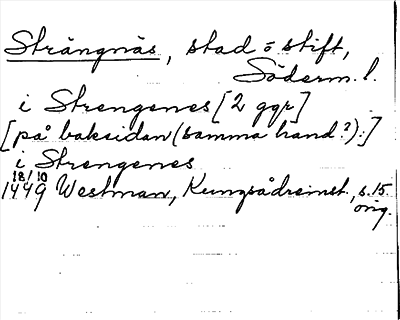 Strängnäs, stad o stift,
Söderm. l.
i Strengenes [2 ggr]
[på baksidan (samma hand?):]
i Strengenes
18/10
1449 Westman, Kungsådreinst., s. 15.
orig.